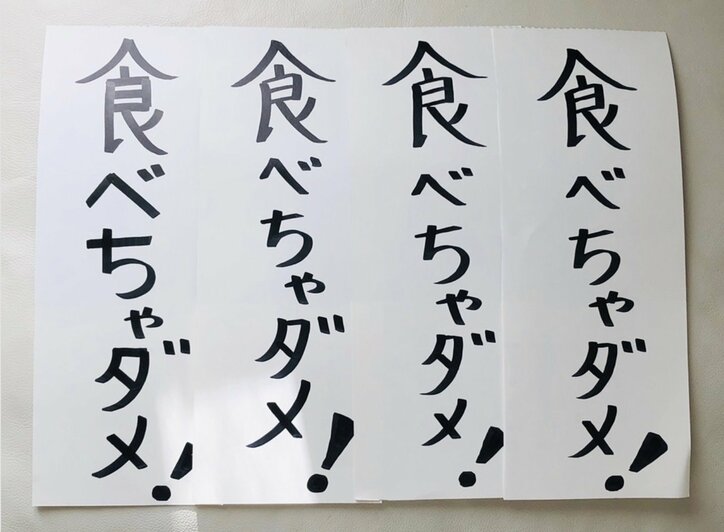 食べちゃダメ!
食べちゃダメ!
食べちゃダメ!
食べちゃダメ!